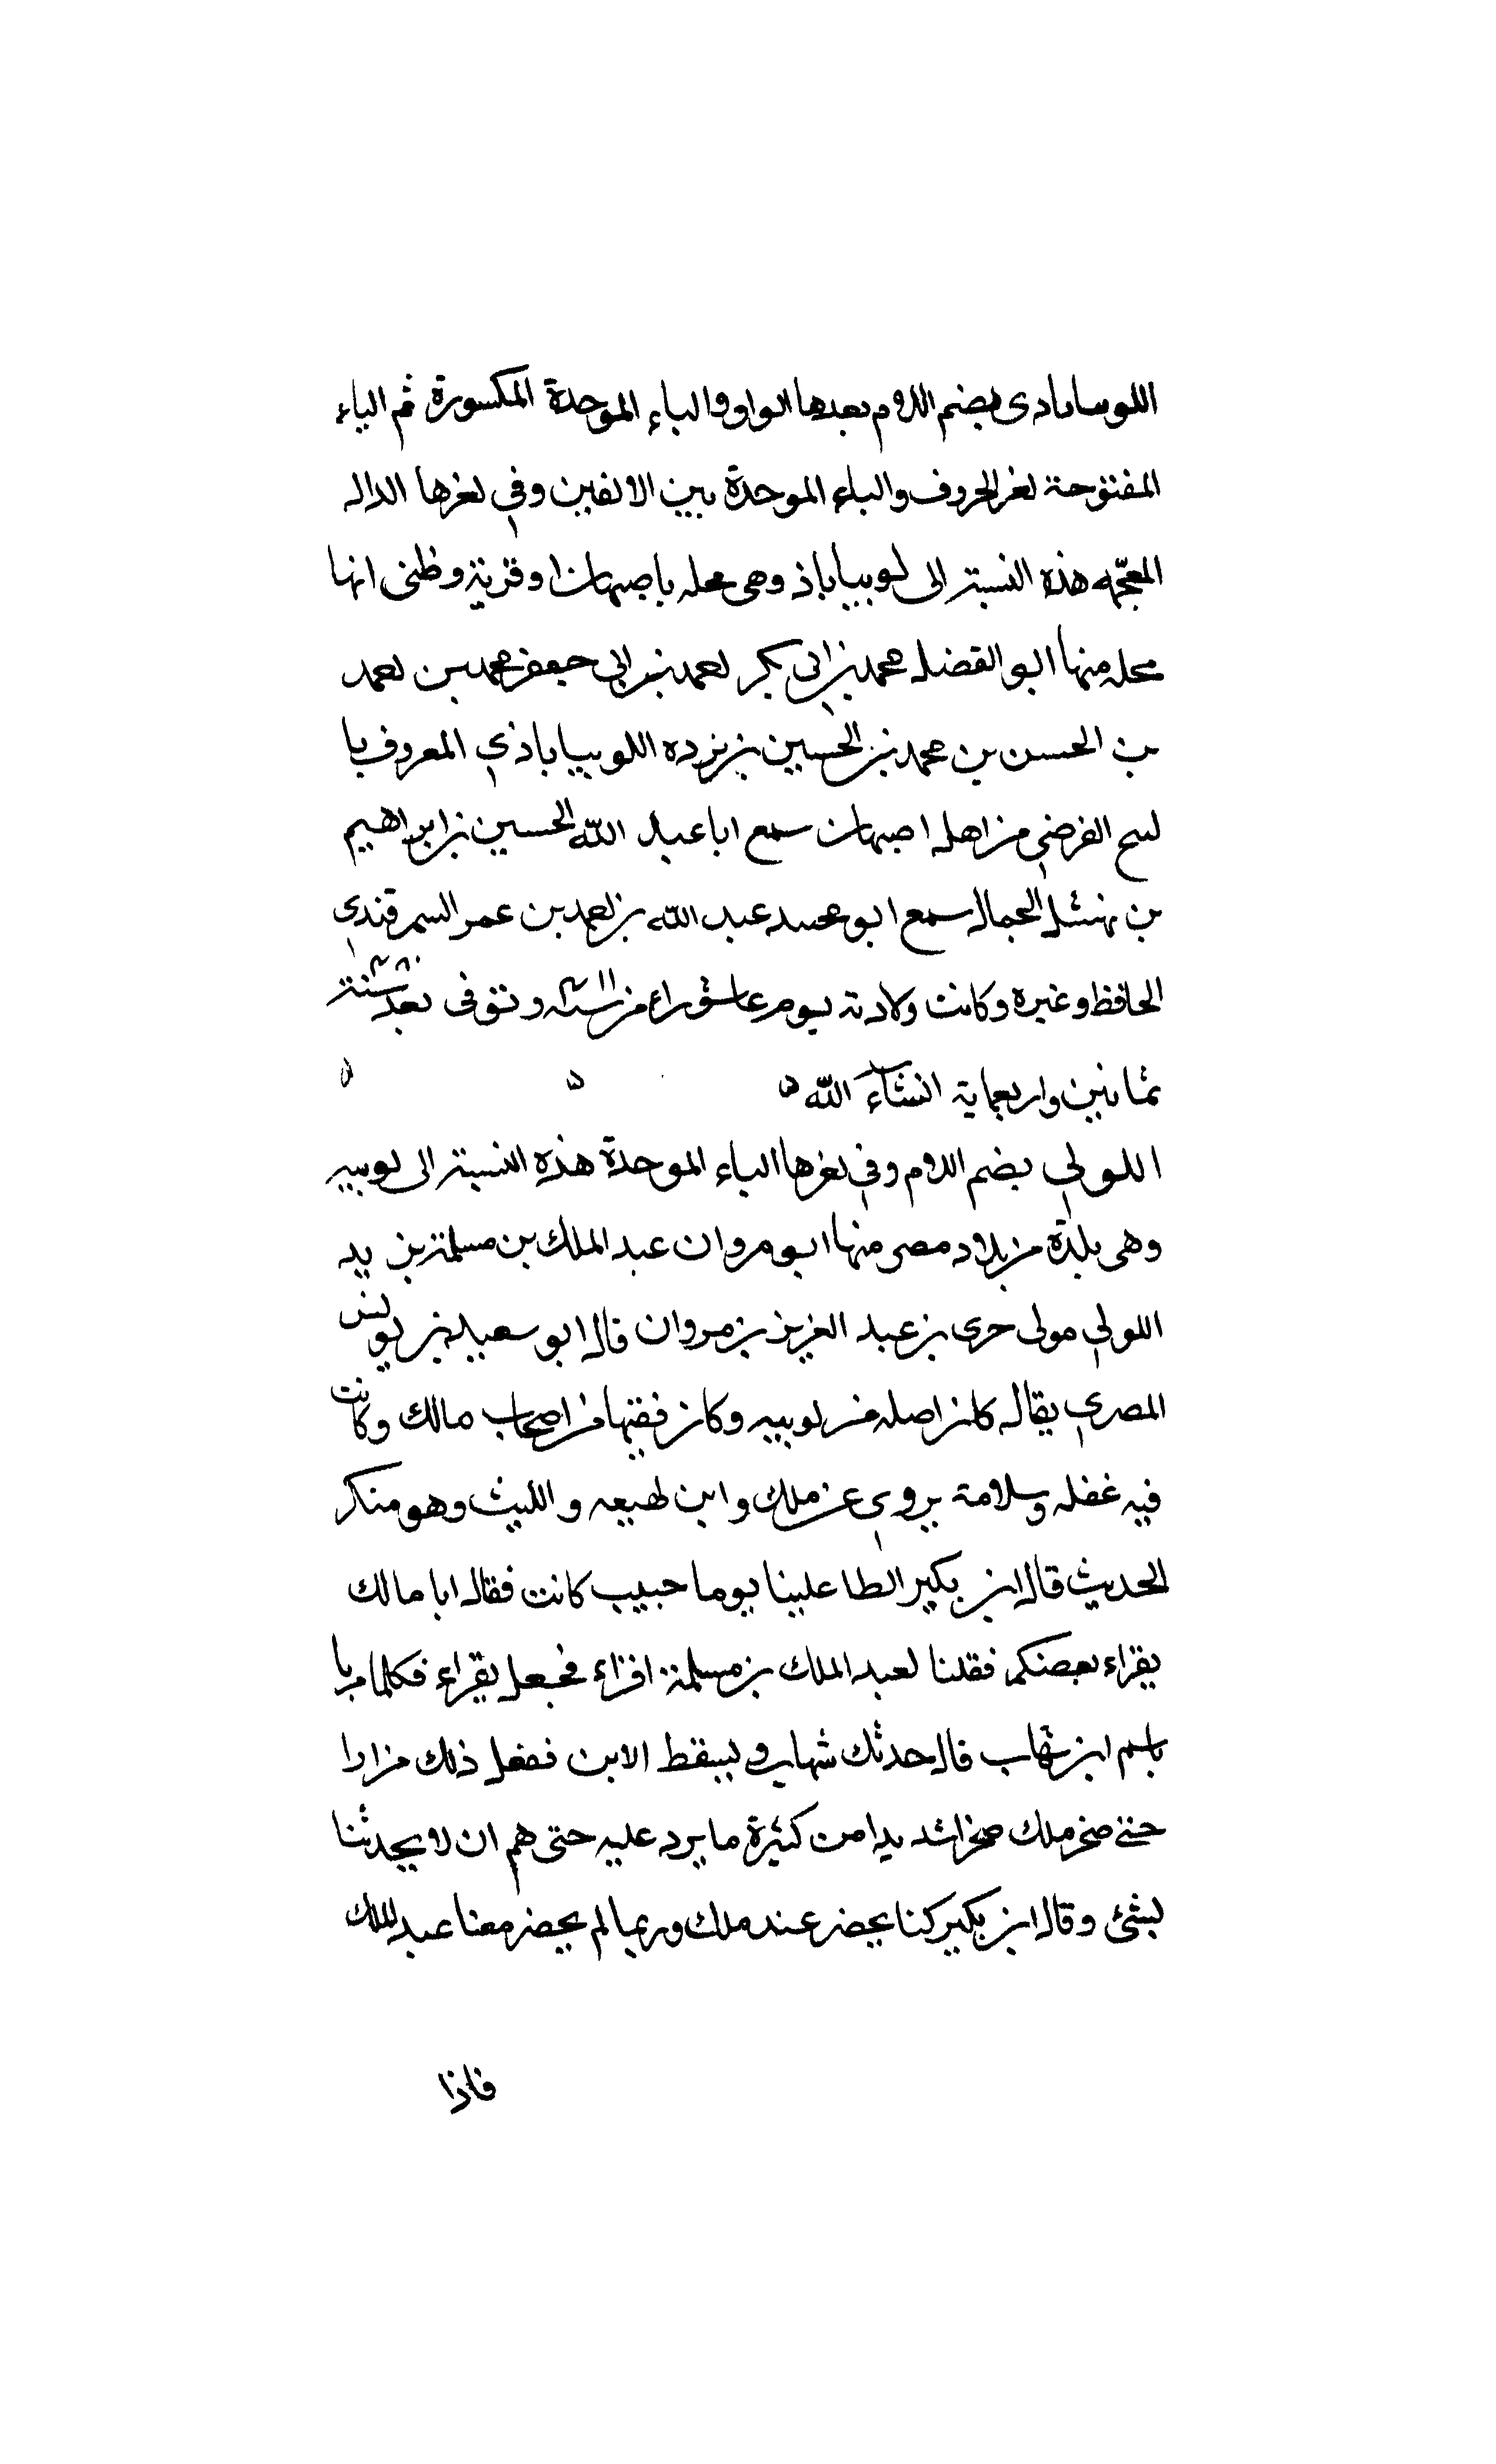 اللوساىادى بضم اللام بعدها الواو والباء الموحدة المكسورة ثم الياء
المفتوحة لخر الحروف والباء الموحدة بين الالفين وفي لخرها الدال
المعجمه هذه النسبة الى لوبياباذ وهى محله باصبهان او قرية وظنى انها
محله منها ابو الفضل محمد بن ابى بكر لحمد بن ابى جعفر محمد بن لحمد
بن الحسن بن محمد بن الحسين بن يزده اللوبياباذي المعروف با
الفرضي من اهل اصبهان سمع ابا عبد الله الحسين بن ابراهيم
بن نهشل الحمال سمع ابو محمد عبد الله بن لحمد بن عمر السمرقندي
الحافظ وغيره وكانت ولادته يوم عاشوراء من وتوفى بعد سنة
ثمانين واربعماية انشاء الله
اللوبي بضم اللام وفي لخرها الباء الموحدة هذه النسبة الى لوبيه
وهى بلدة من بلاد مصر منها ابو مروان عبد الملك بن مسلمة بن يد
اللوبي مولى جرى بن عبد العزيز بن مروان قال ابو سعيد بن يونس
المصري يقال كان اصله من لوبيه وكان فقيها من اصحاب مالك وكانت
فيه غفله وسلامة يروي عن ملك وابن لهيعه والليث وهو منكر
الحديث قال ابن بكير ابطا علينا يوما حبيب كانت فقال ابا مالك
يقراء بعضكم فقلنا لعبد الملك بن مسلمة اقراء فجعل يقراء فكلما مر با
باسم ابن شهاب قال حدثك شهاب ويسقط الابن ففعل ذلك مرارا
حتى ضجر ملك ضجرا شديدا من كثرة ما يرد عليه حتى هم ان لا يحدثنا
بشئ وقال ابن بكير كنا يحضر عند ملك وربما لم يحضر معنا عبد الملك
فاذا